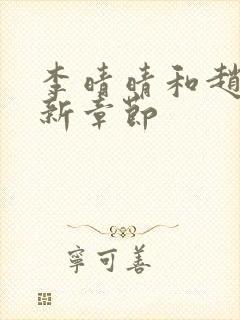 李晴晴和趙
新章節
寧可善